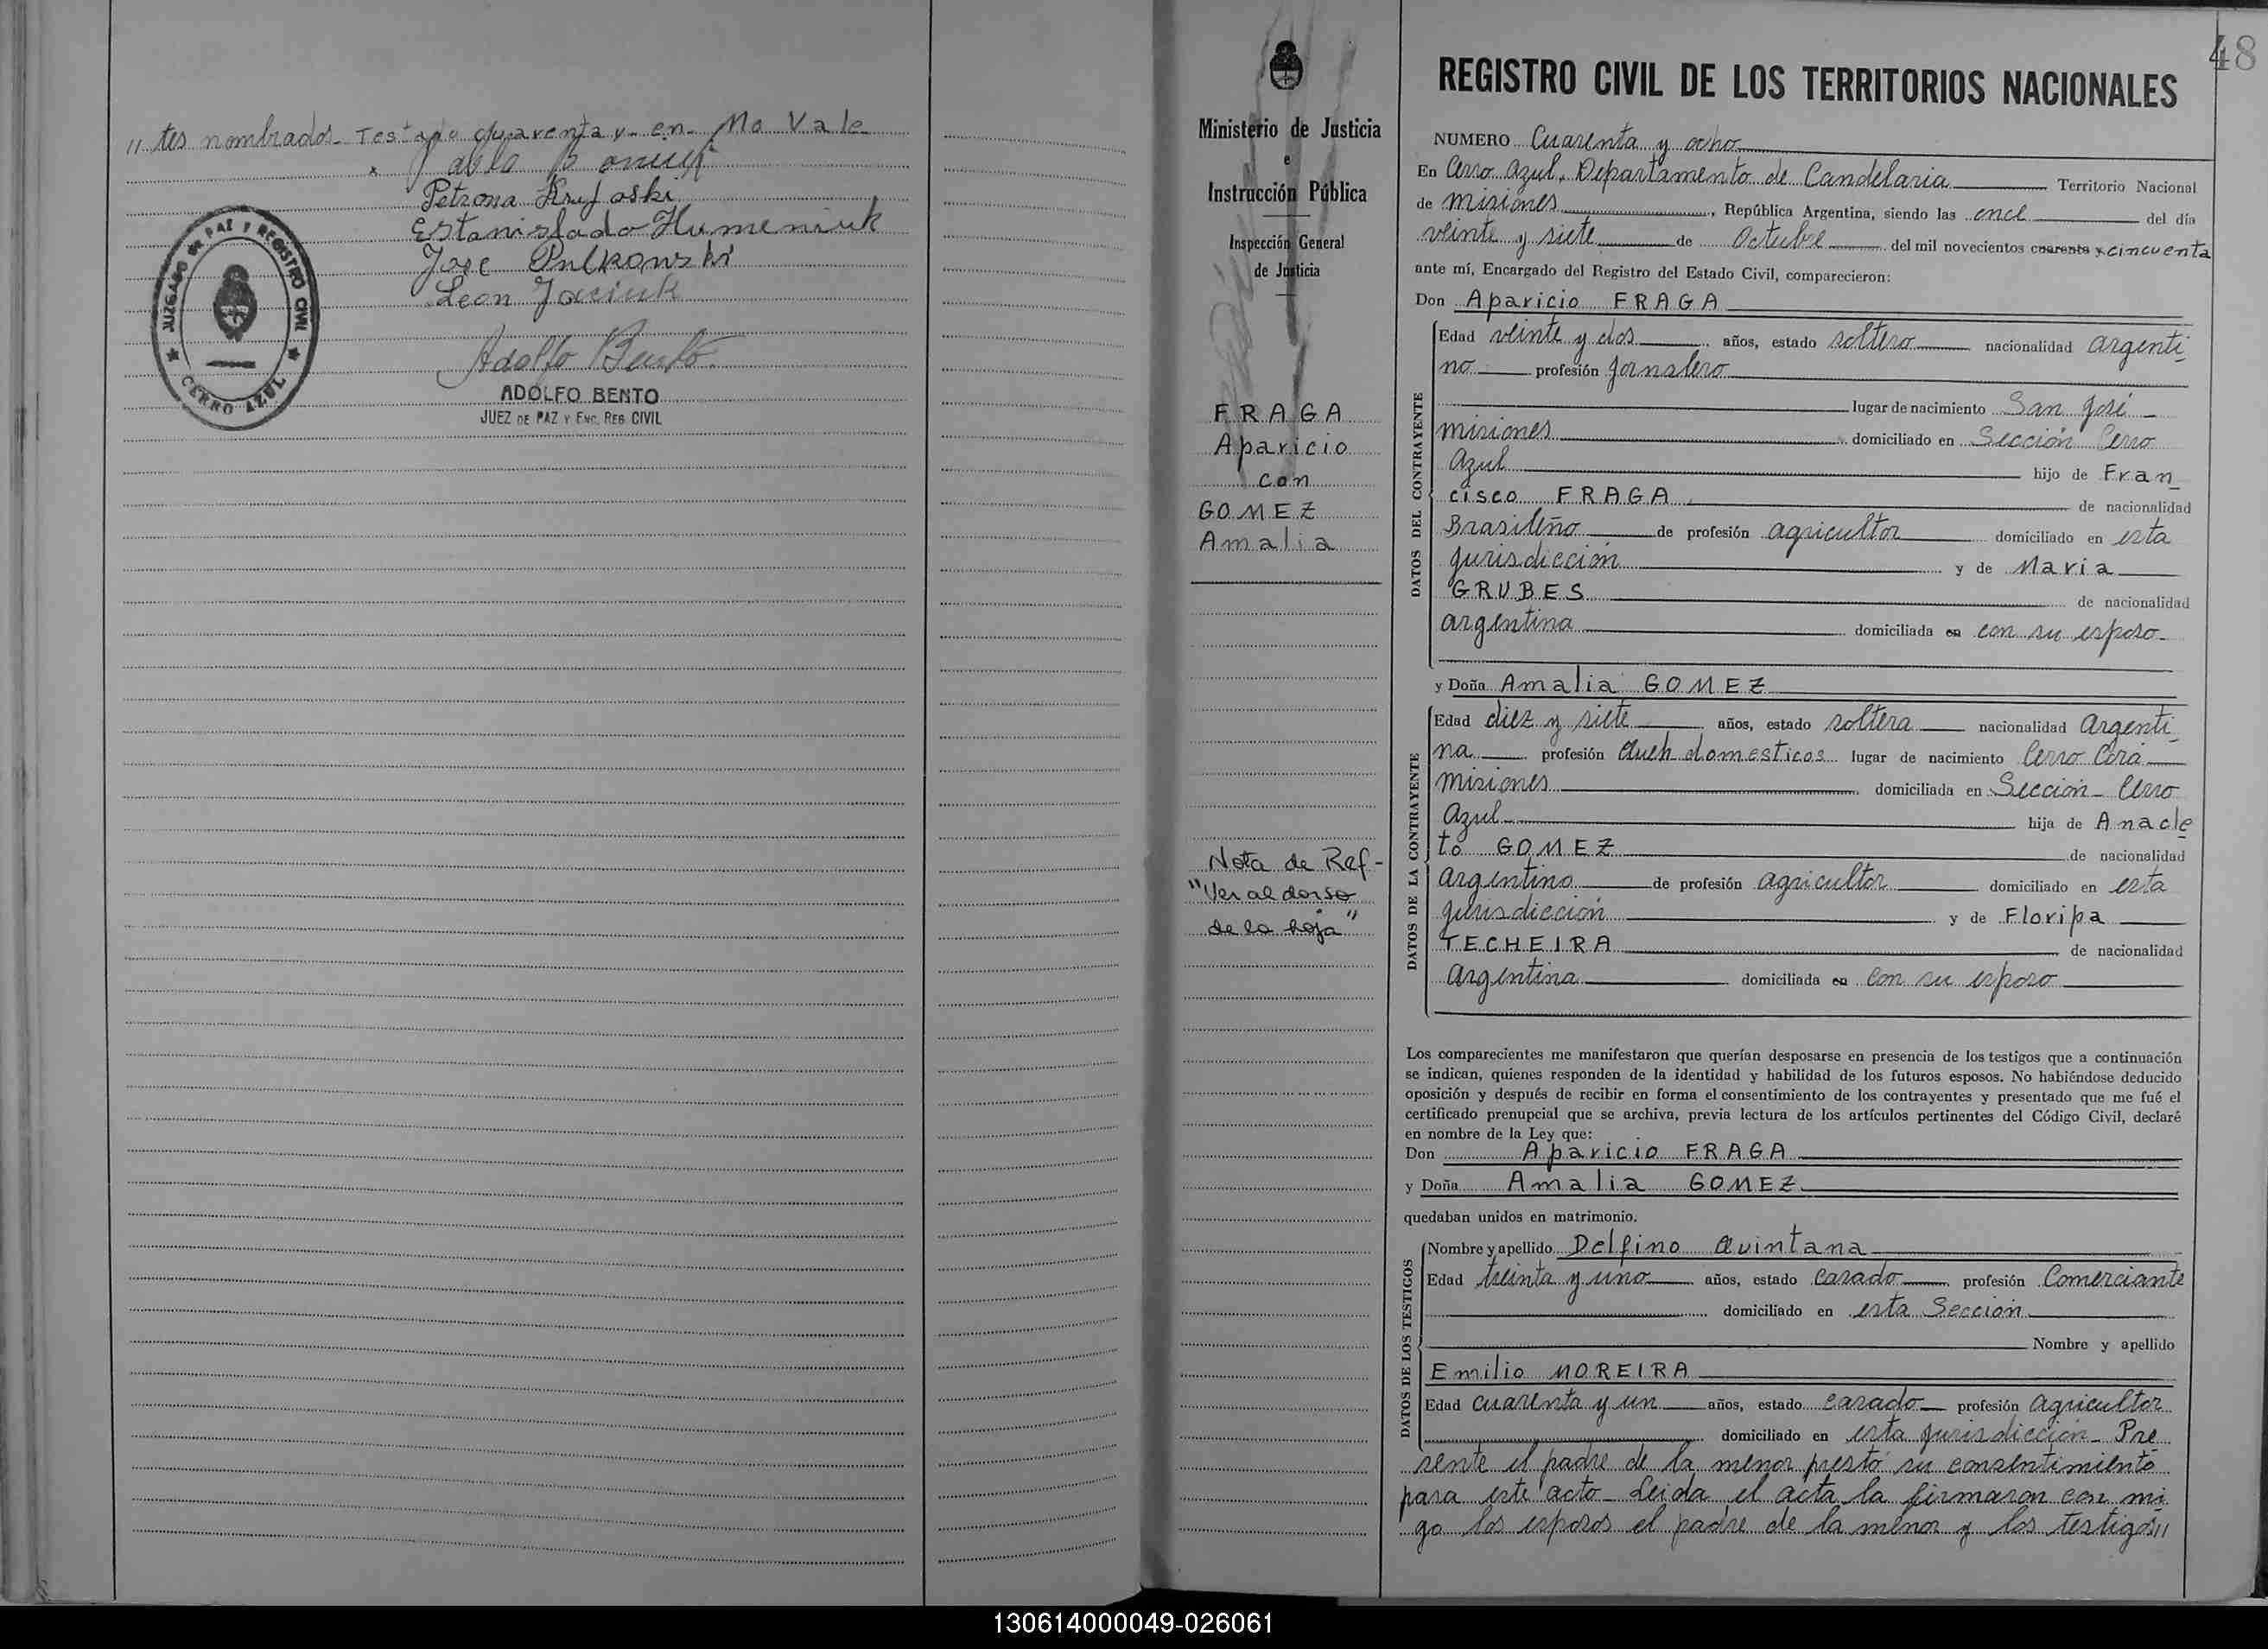 " tes nombrados_ Testado cuarenta y_ en_ No Vale
Petrona
Estanislado Humeniuk
José Pulkowski
Leon Jaciuk
Adolfo Bento
ADOLFO BENTO
JUEZ DE PAZ Y ENC. REG. CIVIL
JUZGADO DE PAZ Y REGISTRO CIVIL
CERRO AZUL
Ministerio de Justicia
e
Instrucción Pública
Inspección General
de Justicia
FRAGA
Aparicio
con
GOMEZ
Amalia
Nota de Ref-
"Ver al dorso
de la hoja"
48
REGISTRO CIVIL DE LOS TERRITORIOS NACIONALES
NUMERO Cuarenta y ocho
En Cerro Azul, Departamento de Candelaria Territorio Nacional
de Misiones, República Argentina, siendo las once del día
veinte y siete de Octubre del mil novecientos cuarenta y cincuenta
ante mí, Encargado del Registro del Estado Civil, comparecieron:
Don Aparicio FRAGA
DATOS DEL CONTRAYENTE
Edad veinte y dos años, estado soltero nacionalidad argenti_
no profesión Jornalero
lugar de nacimiento San José
Misiones domiciliado en Sección Cerro
Azul hijo de Fran_
cisco FRAGA de nacionalidad
Brasileño de profesión agricultor domiciliado en esta
jurisdicción y de Maria
GRUBES de nacionalidad
argentina domiciliada en con su esposo_
y Doña Amalia GOMEZ
DATOS DE LA CONTRAYENTE
Edad diez y siete años, estado soltera nacionalidad Argenti_
na profesión Queh domesticos lugar de nacimiento Cerro Corá
Misiones domiciliada en Sección_ Cerro
Azul hija de Anacle
to GOMEZ de nacionalidad
Argentino de profesión agricultor domiciliado en esta
jurisdicción y de Floripa
TECHEIRA de nacionalidad
Argentina domiciliada en con su esposo
Los comparecientes me manifestaron que querían desposarse en presencia de los testigos que a continuación
se indican, quienes responden de la identidad y habilidad de los futuros esposos. No habiéndose deducido
oposición y después de recibir en forma el consentimiento de los contrayentes y presentado que me fué el
certificado prenupcial que se archiva, previa lectura de los artículos pertinentes del Código Civil, declaré
en nombre de la Ley que:
Don Aparicio FRAGA
y Doña Amalia GOMEZ
quedaban unidos en matrimonio.
DATOS DE LOS TESTIGOS
Nombre y apellido Delfino Quintana
Edad treinta y uno años, estado casado profesión Comerciante
domiciliado en esta Sección
Nombre y apellido
Emilio MOREIRA
Edad cuarenta y un años, estado casado profesión agricultor
domiciliado en esta jurisdicción_ Pre
sente el padre de la menor prestó su consentimiento
para este acto_ Leida el acta la firmaron con mi
go los esposos el padre de la menor y los testigos"
130614000049-026061